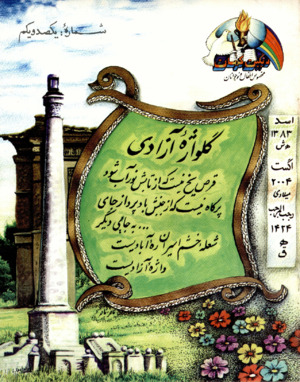 شماره، یکصد و یکم
گلواژهٔ آزادی
قرص یخ نیست که از تابش نور آب شود
پرکاه نیست که از جنبش باد پرواز جای
...به جایی دیگر
شعله خشم اسیران ره آزادیست
واژه آزادیست
اسد
۱۳۸۳
هش
اگست
۲۰۰۴
میلادی
رجب المرجب
۱۴۲۴
ه ق